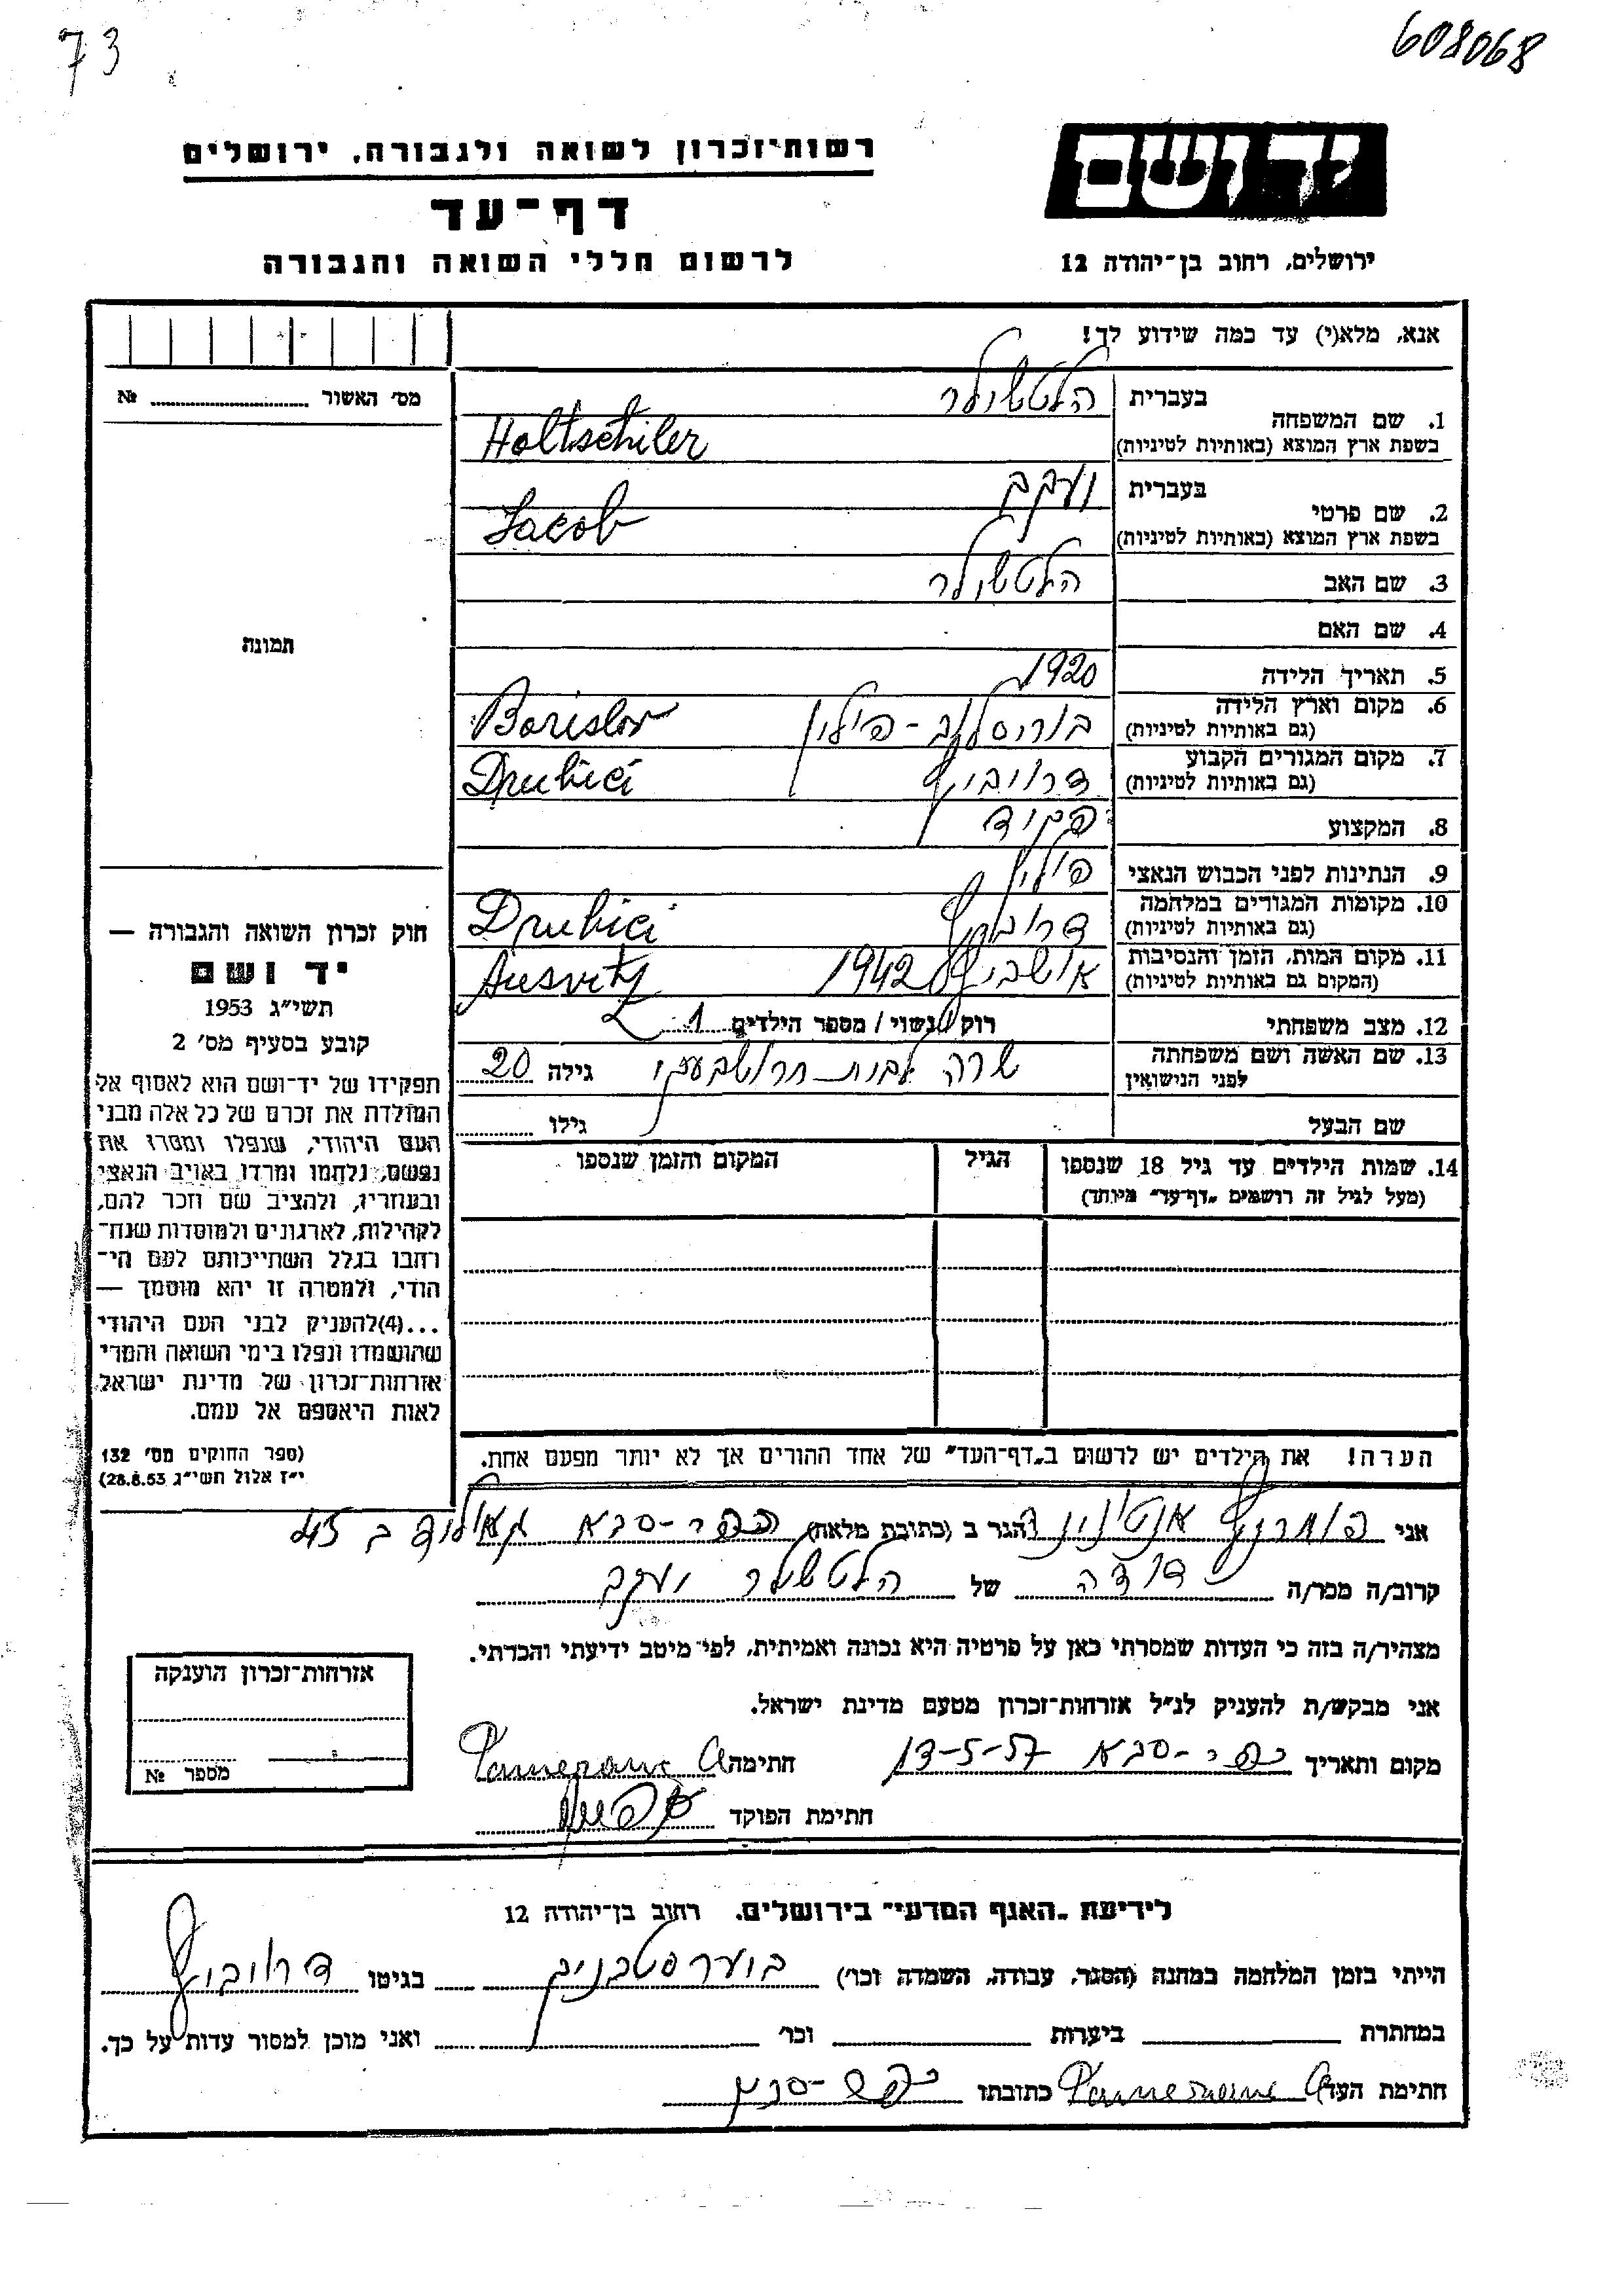 73
608068
יד ושם
רשות־זכרון לשואה ולגבורה, ירושלים
דף־עד
לרשום חללי השואה והגבורה
ירושלים, רחוב בן־יהודה 12
אנא, מלא(י) עד כמה שידוע לך!
מס׳ האשור № 
1. שם המשפחה
בעברית הלטשילר
בשפת ארץ המוצא (באותיות לטיניות) Holtschiler
2. שם פרטי
בעברית יעקב
בשפת ארץ המוצא (באותיות לטיניות) Jacob
3. שם האב הלטשילר
4. שם האם
5. תאריך הלידה 1920
6. מקום וארץ הלידה
(גם באותיות לטיניות) בוריסלב - פולין Borislov
7. מקום המגורים הקבוע
(גם באותיות לטיניות) דרוביץ Drubici
8. המקצוע פקיד
9. הנתינות לפני הכבוש הנאצי פולין
10. מקומות המגורים במלחמה
(גם באותיות לטיניות) Drubici
11. מקום המות, הזמן והנסיבות
(המקום גם באותיות לטיניות) אושביץ 1942 Ausvitz
12. מצב משפחתי רוק / נשוי / מספר הילדים 1
13. שם האשה ושם משפחתה
לפני הנישואין שרה לבית גילה 20
שם הבעל גילו
14. שמות הילדים עד גיל 18 שנספו
(מעל לגיל זה רושמים „דף־עד״ מיוחד)
הגיל
המקום והזמן שנספו
הערה! את הילדים יש לרשום ב„דף־העד״ של אחד ההורים אך לא יותר מפעם אחת.
תמונה
חוק זכרון השואה והגבורה —
יד ושם
תשי״ג 1953
קובע בסעיף מס׳ 2
תפקידו של יד־ושם הוא לאסוף אל
המולדת את זכרם של כל אלה מבני
העם היהודי, שנפלו ומסרו את
נפשם, נלחמו ומרדו באויב הנאצי
ובעוזריו, ולהציב שם וזכר להם,
לקהילות, לארגונים ולמוסדות שנח־
רבו בגלל השתייכותם לעם הי־
הודי, ולמטרה זו יהא מוסמך —
...(4)להעניק לבני העם היהודי
שהושמדו ונפלו בימי השואה והמרי
אזרחות־זכרון של מדינת ישראל
לאות היאספם אל עמם.
(ספר החוקים מס׳ 132
י״ז אלול תשי״ג 28.8.53)
אני אנטונינה הגר ב (כתובת מלאה) כפר-סבא ב 45
קרוב/ה מכר/ה דודה של הלטשילר יעקב
מצהיר/ה בזה כי העדות שמסרתי כאן על פרטיה היא נכונה ואמיתית, לפי מיטב ידיעתי והכרתי.
אני מבקש/ת להעניק לנ״ל אזרחות־זכרון מטעם מדינת ישראל.
מקום ותאריך כפר-סבא 13-5-57 חתימה Pomeranc A
חתימת הפוקד
אזרחות־זכרון הוענקה
מספר №
לידיעת „האגף המדעי״ בירושלים, רחוב בן־יהודה 12
הייתי בזמן המלחמה במחנה (הסגר, עבודה, השמדה וכו׳) בגיטו דרוביץ
במחתרת ביערות וכו׳ ואני מוכן למסור עדות על כך.
חתימת העד Pomeranc A כתובתו כפר-סבא